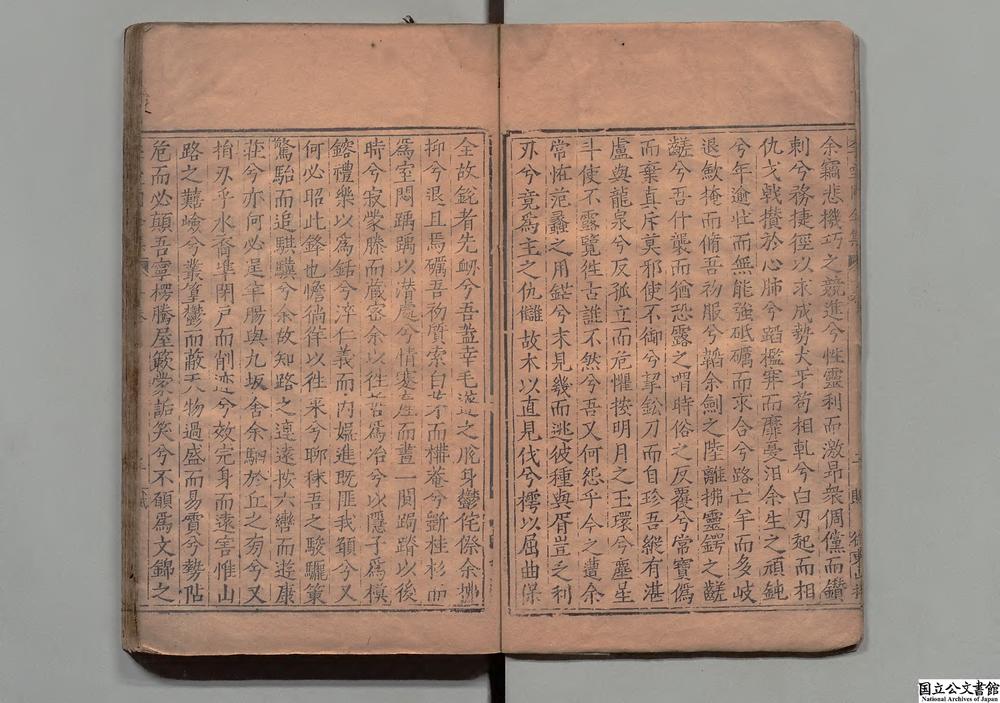 余霸悲機巧之競進兮性靈利而激昻衆倜儻而鑽
刺兮務捷徑以求成勢犬牙苟相軋兮白刃起而相
仇戈戟攅於心肺兮蹈檻穽而靡憂汨余生之頑鈍
兮年逾壯而無能強砥礪而求合兮路亡羊而多岐
退歛掩而脩吾初服兮韜余劍之陸離拂靈鍔之
齾兮吾什襲而猶恐露之喟時俗之反覆兮常寶僞
而棄真斥莫邪使不御兮挈鈆刀而自珍吾縱有湛
盧與龍泉兮反孤立而危懼按明月之玉環兮塵星
斗使不露覽徃古誰不然兮吾又何怨乎今之遭余
常恠范蠡之用鋩兮未見幾而逃彼種與胥豈乏利
刃兮竟爲主之仇讎故木以直見伐兮樗以屈曲保
全故銳者先衂兮吾盖幸毛遂之脫身鬱侘傺余
抑兮退且焉礪吾初質索白茅而構菴兮斷桂杉而
爲室悶踽踽以潜處兮情而晝一閴跼蹐以後
時兮寂蒙滕而藏密余以徃昔爲冶兮以隱子爲模
鎔禮樂以爲銛兮淬仁義而内嫗進既匪我頴兮又
何必昭此鋒也憺徜徉以徃来兮聊秣吾之駿驪策
驚駘而追騏驥兮余故知路之遼遠按六轡而遊康
莊兮亦何必逞羊腸與九坂舍余駟於丘之旁兮又
捎刃乎水裔準閉戶而削迹兮效完身而遠害惟山
路之囏嶮兮叢篁鬱而蔽天物過盛而易霣兮勢阽
危而必顛吾寧楞騰屋簌蒙詬矣兮不願爲文錦之
国立公文書館
National Archives of Japan